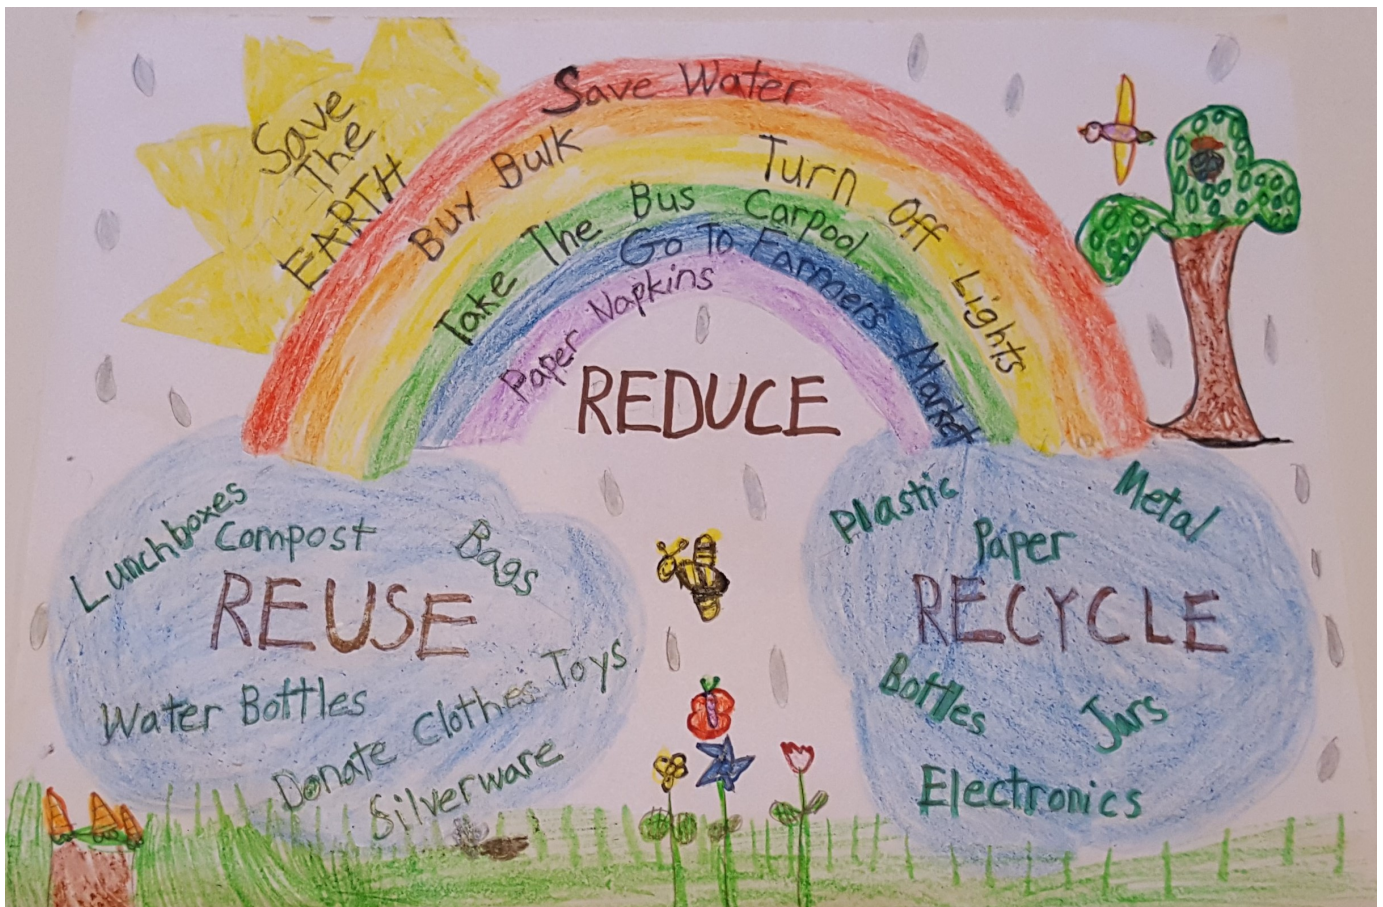 Save
The
EARTH
Save Water
Buy Bulk
Turn Off Lights
Take The Bus Carpool
Go To Farmers Market
Paper Napkins
REDUCE
Lunchboxes
Compost
Bags
REUSE
Water Bottles
Donate Clothes Toys
Silverware
Plastic
Metal
Paper
RECYCLE
Bottles
Jars
Electronics